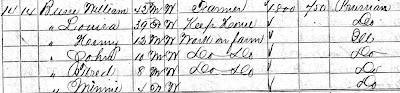 14 14 Buse William 45 M W Farmer 1800 750 Prussian
" Louisa 39 F W Keep House √ Do
" Henry 12 M W Work on farm √ Do
" John 10 M W Do Do √ Do
" Alfred 8 M W Do Do √ Do
" Minnie 4 W √ Do